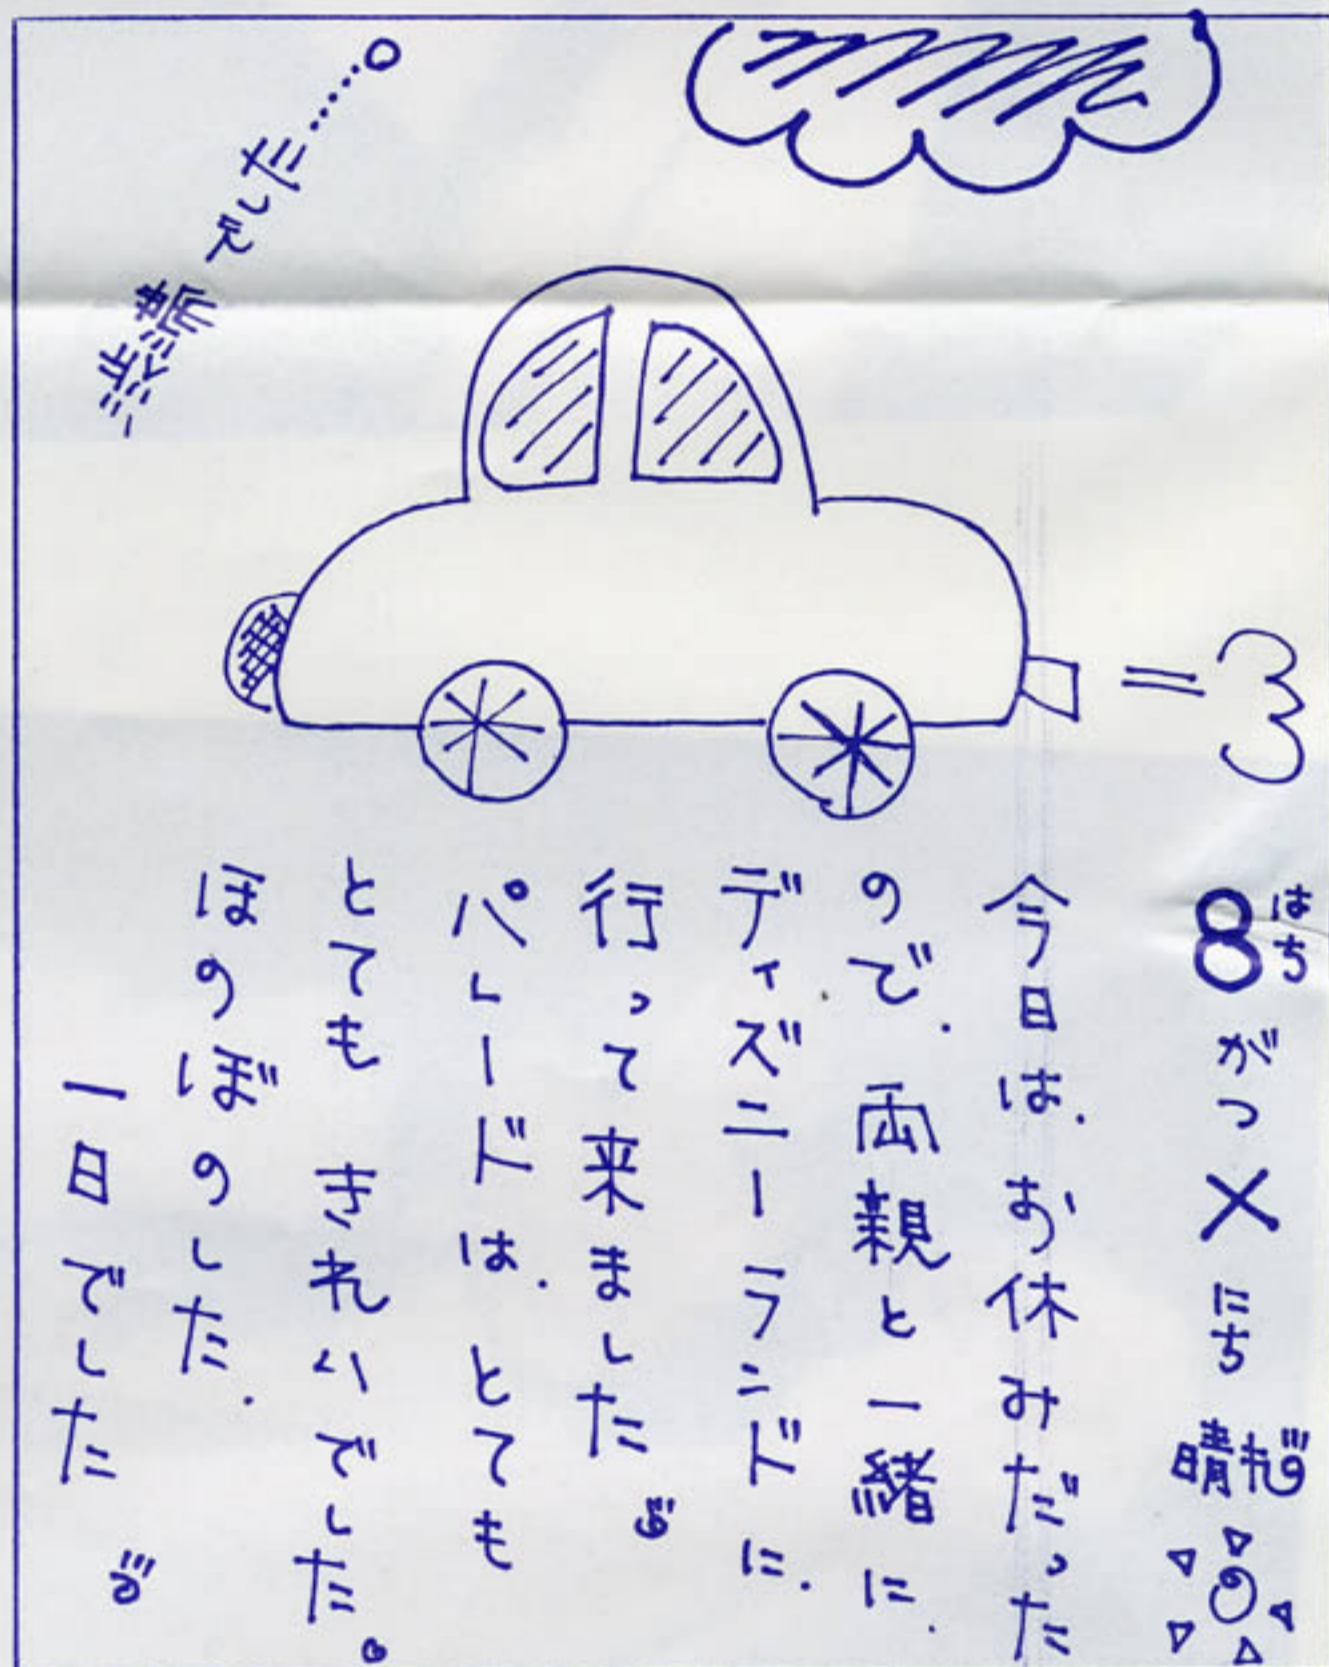 はち
8がつ×にち 晴れ
今日は、お休みだった
ので、両親と一緒に、
ディズニーランドに、
行って来ました
パレードは、とても
とても きれいでした。
ほのぼのした、
一日でした
渋滞でした……。